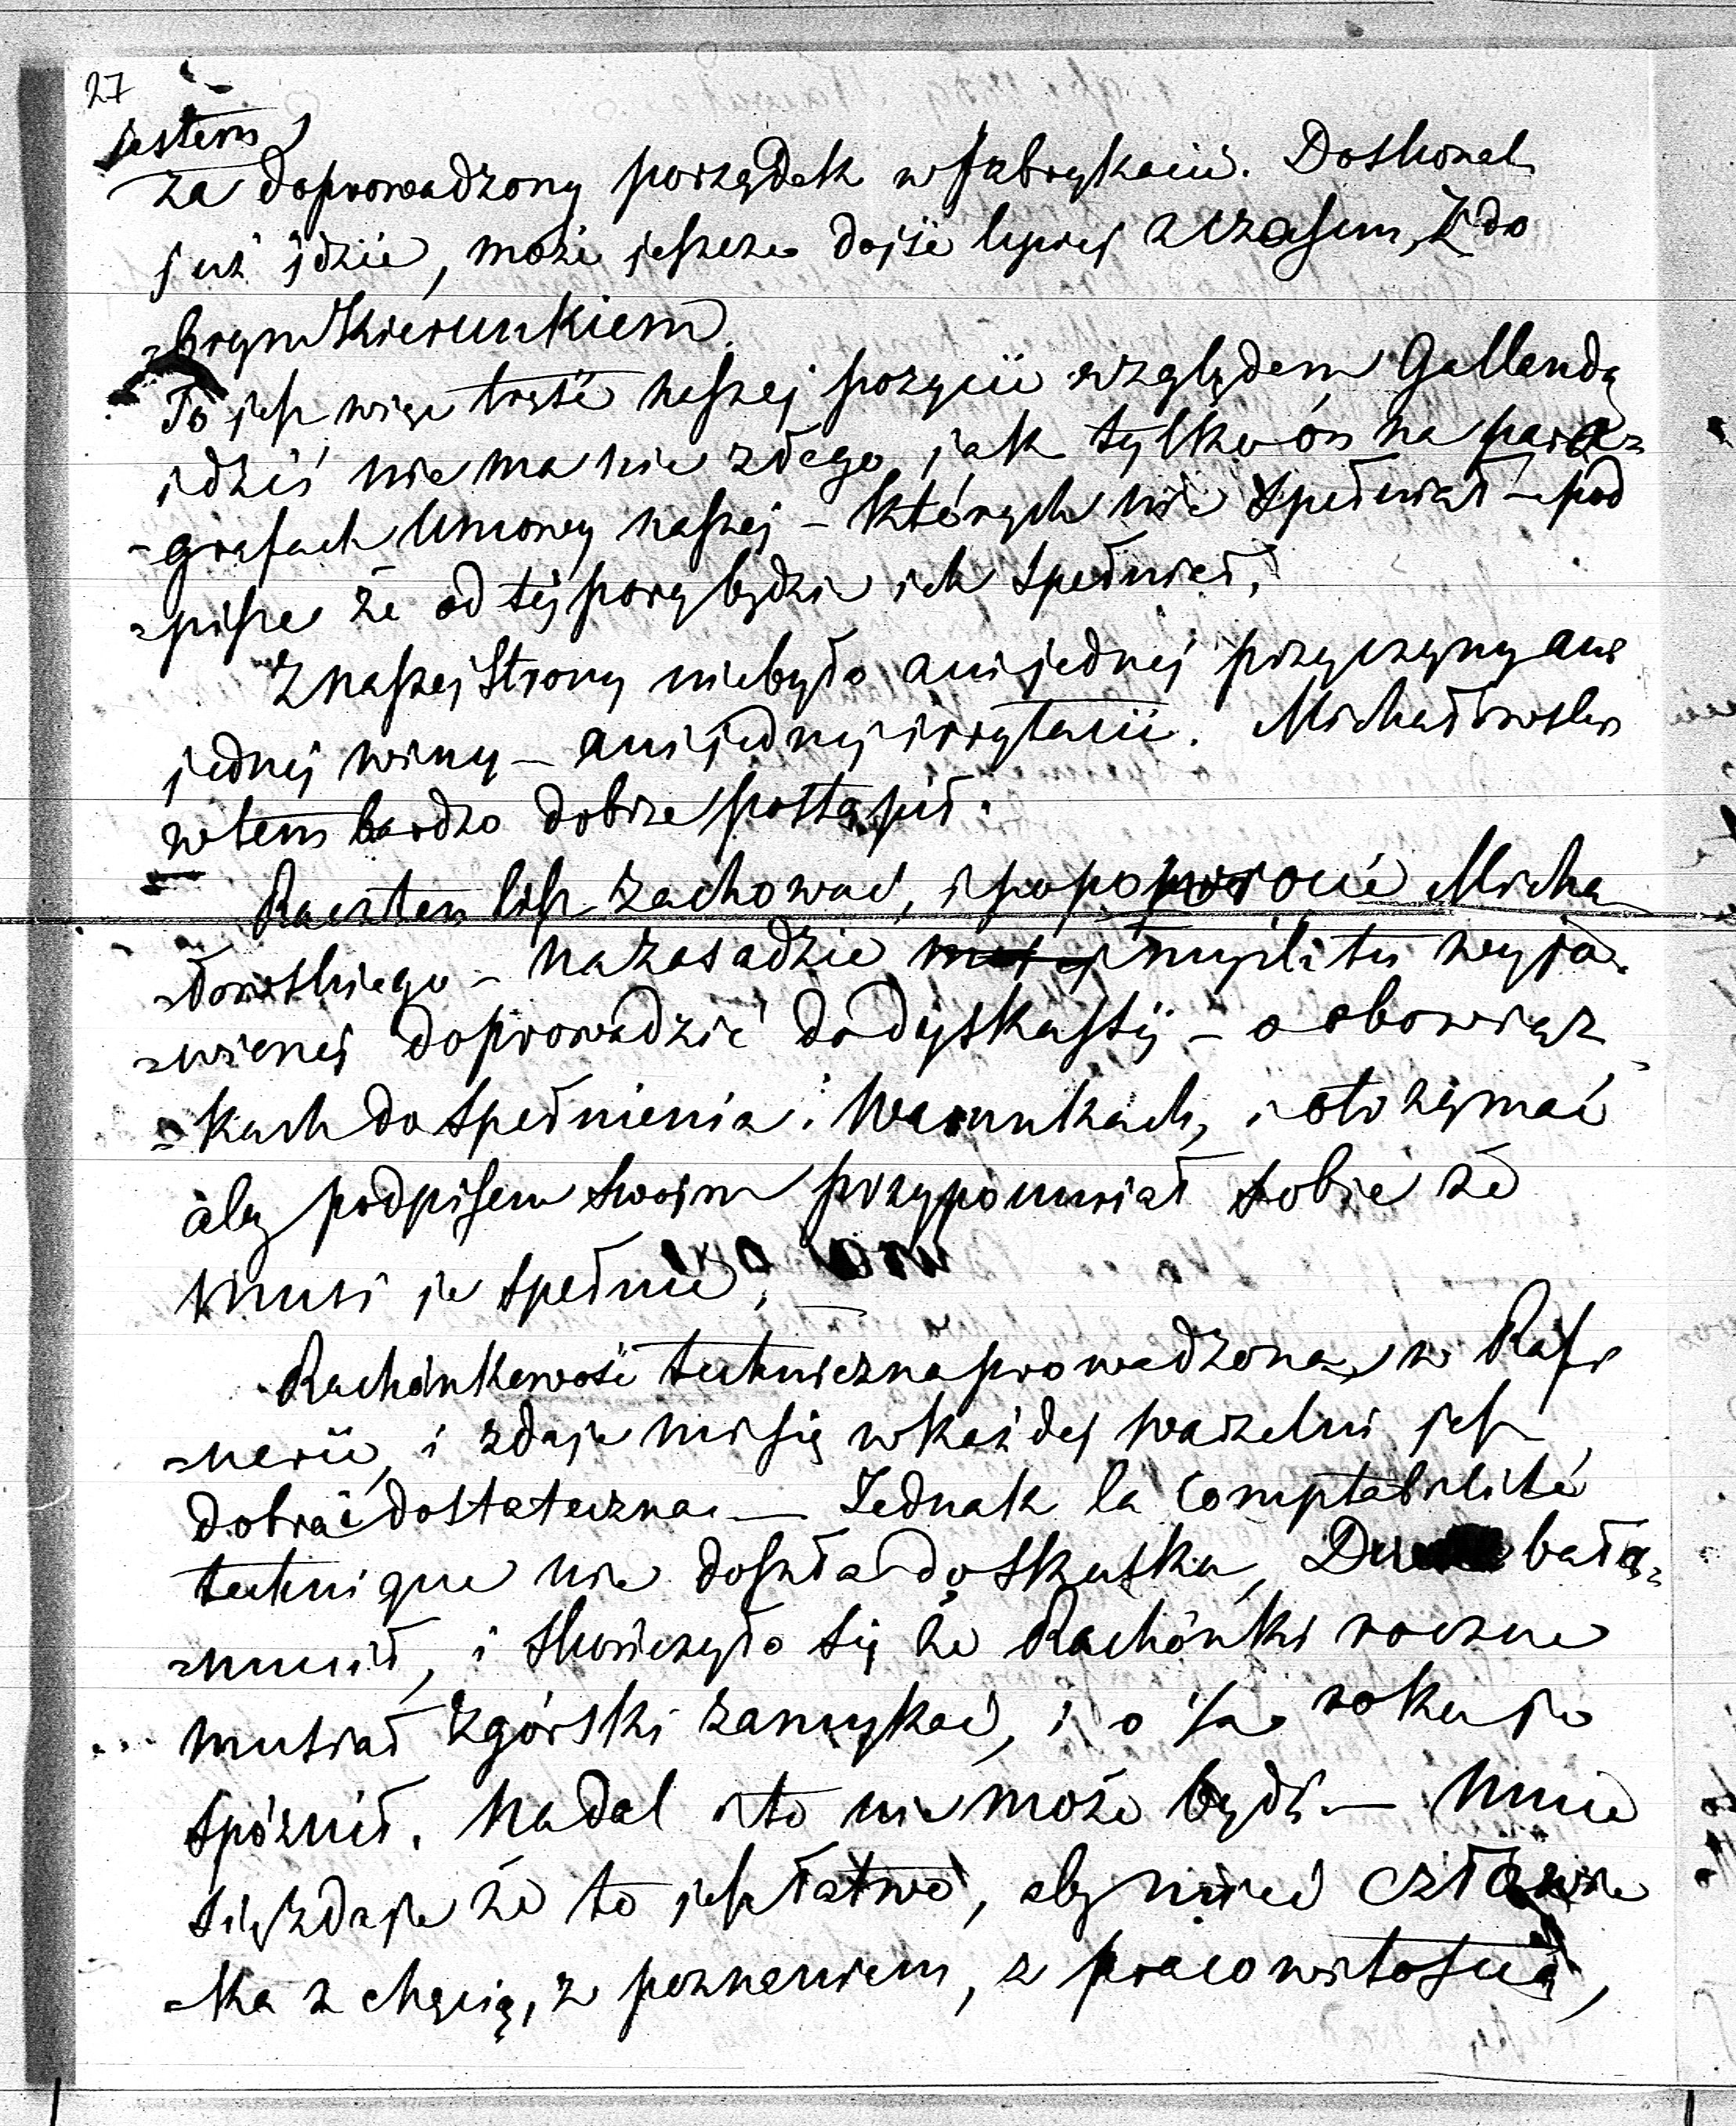 27
jestem
za doprowadzony porządek w fabrykacii. Doskonal
już idzie, może jeszcze dojść lepiej z czasem, z do
-brym kierunkiem.
To jest więc treść naszej pozycii względem Gallanda
i dziś nie ma nic złego, jak tylko on na para-
-grafach Umowy naszej – których nie spełniał – pod
-pisze że od tej pory będzie ich spełniał.
Z naszej Strony niebyło ani jednej przyczyny ani
jednej winy – ani jednej irrytacii. Michałowski
w tem bardzo dobrze postąpił.
Racz ten list zachować, i Micha
-łowskiego – na zasadzie myśli tu wyja-
-wionej doprowadzić do dyskussij – o obowiąz
-kach do spełnienia i Warunkach, i otrzymać
aby podpisem swoim przypomniał sobie że
musi je spełnić.
Rachónkowość techniczna prowadzona w Rafi
-nerii, i zdaje mi się w każdej warzelni jest
dobra i dostateczna – Jednak la Comptabilité
technique nie doszła do skutku, bała-
-mucił, i skończyło się że Rachónki roczne
musiał Zgórski zamykać, i o roku je
spóźnił. Nadal i to nie może bydź – Mnie
się zdaje że to jest łatwo, aby mieć człowie
-ka z chęcią, z poznaniem, z pracowitością,